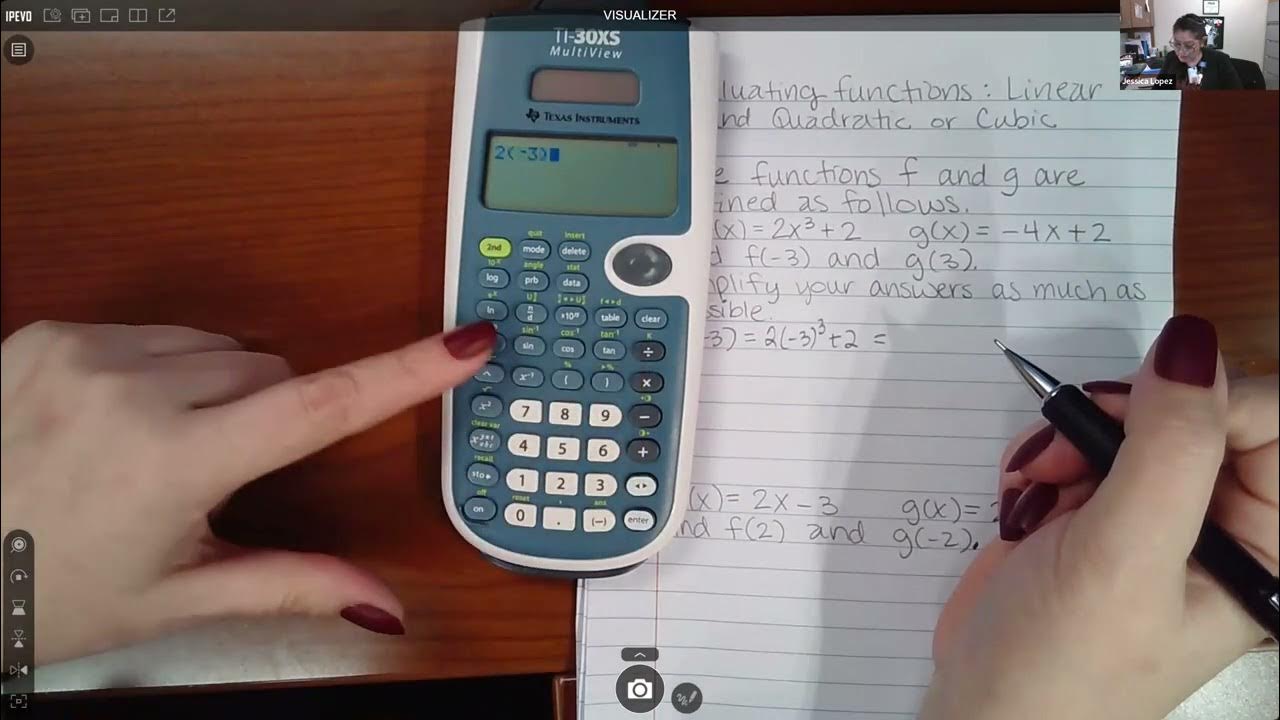 IPEVO
VISUALIZER
Jessica Lopez
TI-30XS
MultiView
TEXAS INSTRUMENTS
2(-3)
luating functions: Linear
nd Quadratic or Cubic
e functions f and g are
ined as follows.
(x) = 2x³ + 2 g(x) = -4x + 2
d f(-3) and g(3).
plify your answers as much as
sible.
-3) = 2(-3)³ + 2 =
(x) = 2x - 3 g(x) =
nd f(2) and g(-2).
quit insert
2nd mode delete
10ˣ angle stat
log prb data
eˣ
ln n/d ×10ⁿ table clear
sin⁻¹ cos⁻¹ tan⁻¹ K
sin cos tan ÷
% ▸%
^ x⁻¹ ( ) ×
x² 7 8 9 −
clear var
4 5 6 +
recall
sto▸ 1 2 3 ◂▸
off reset , ans
on 0 . (−) enter